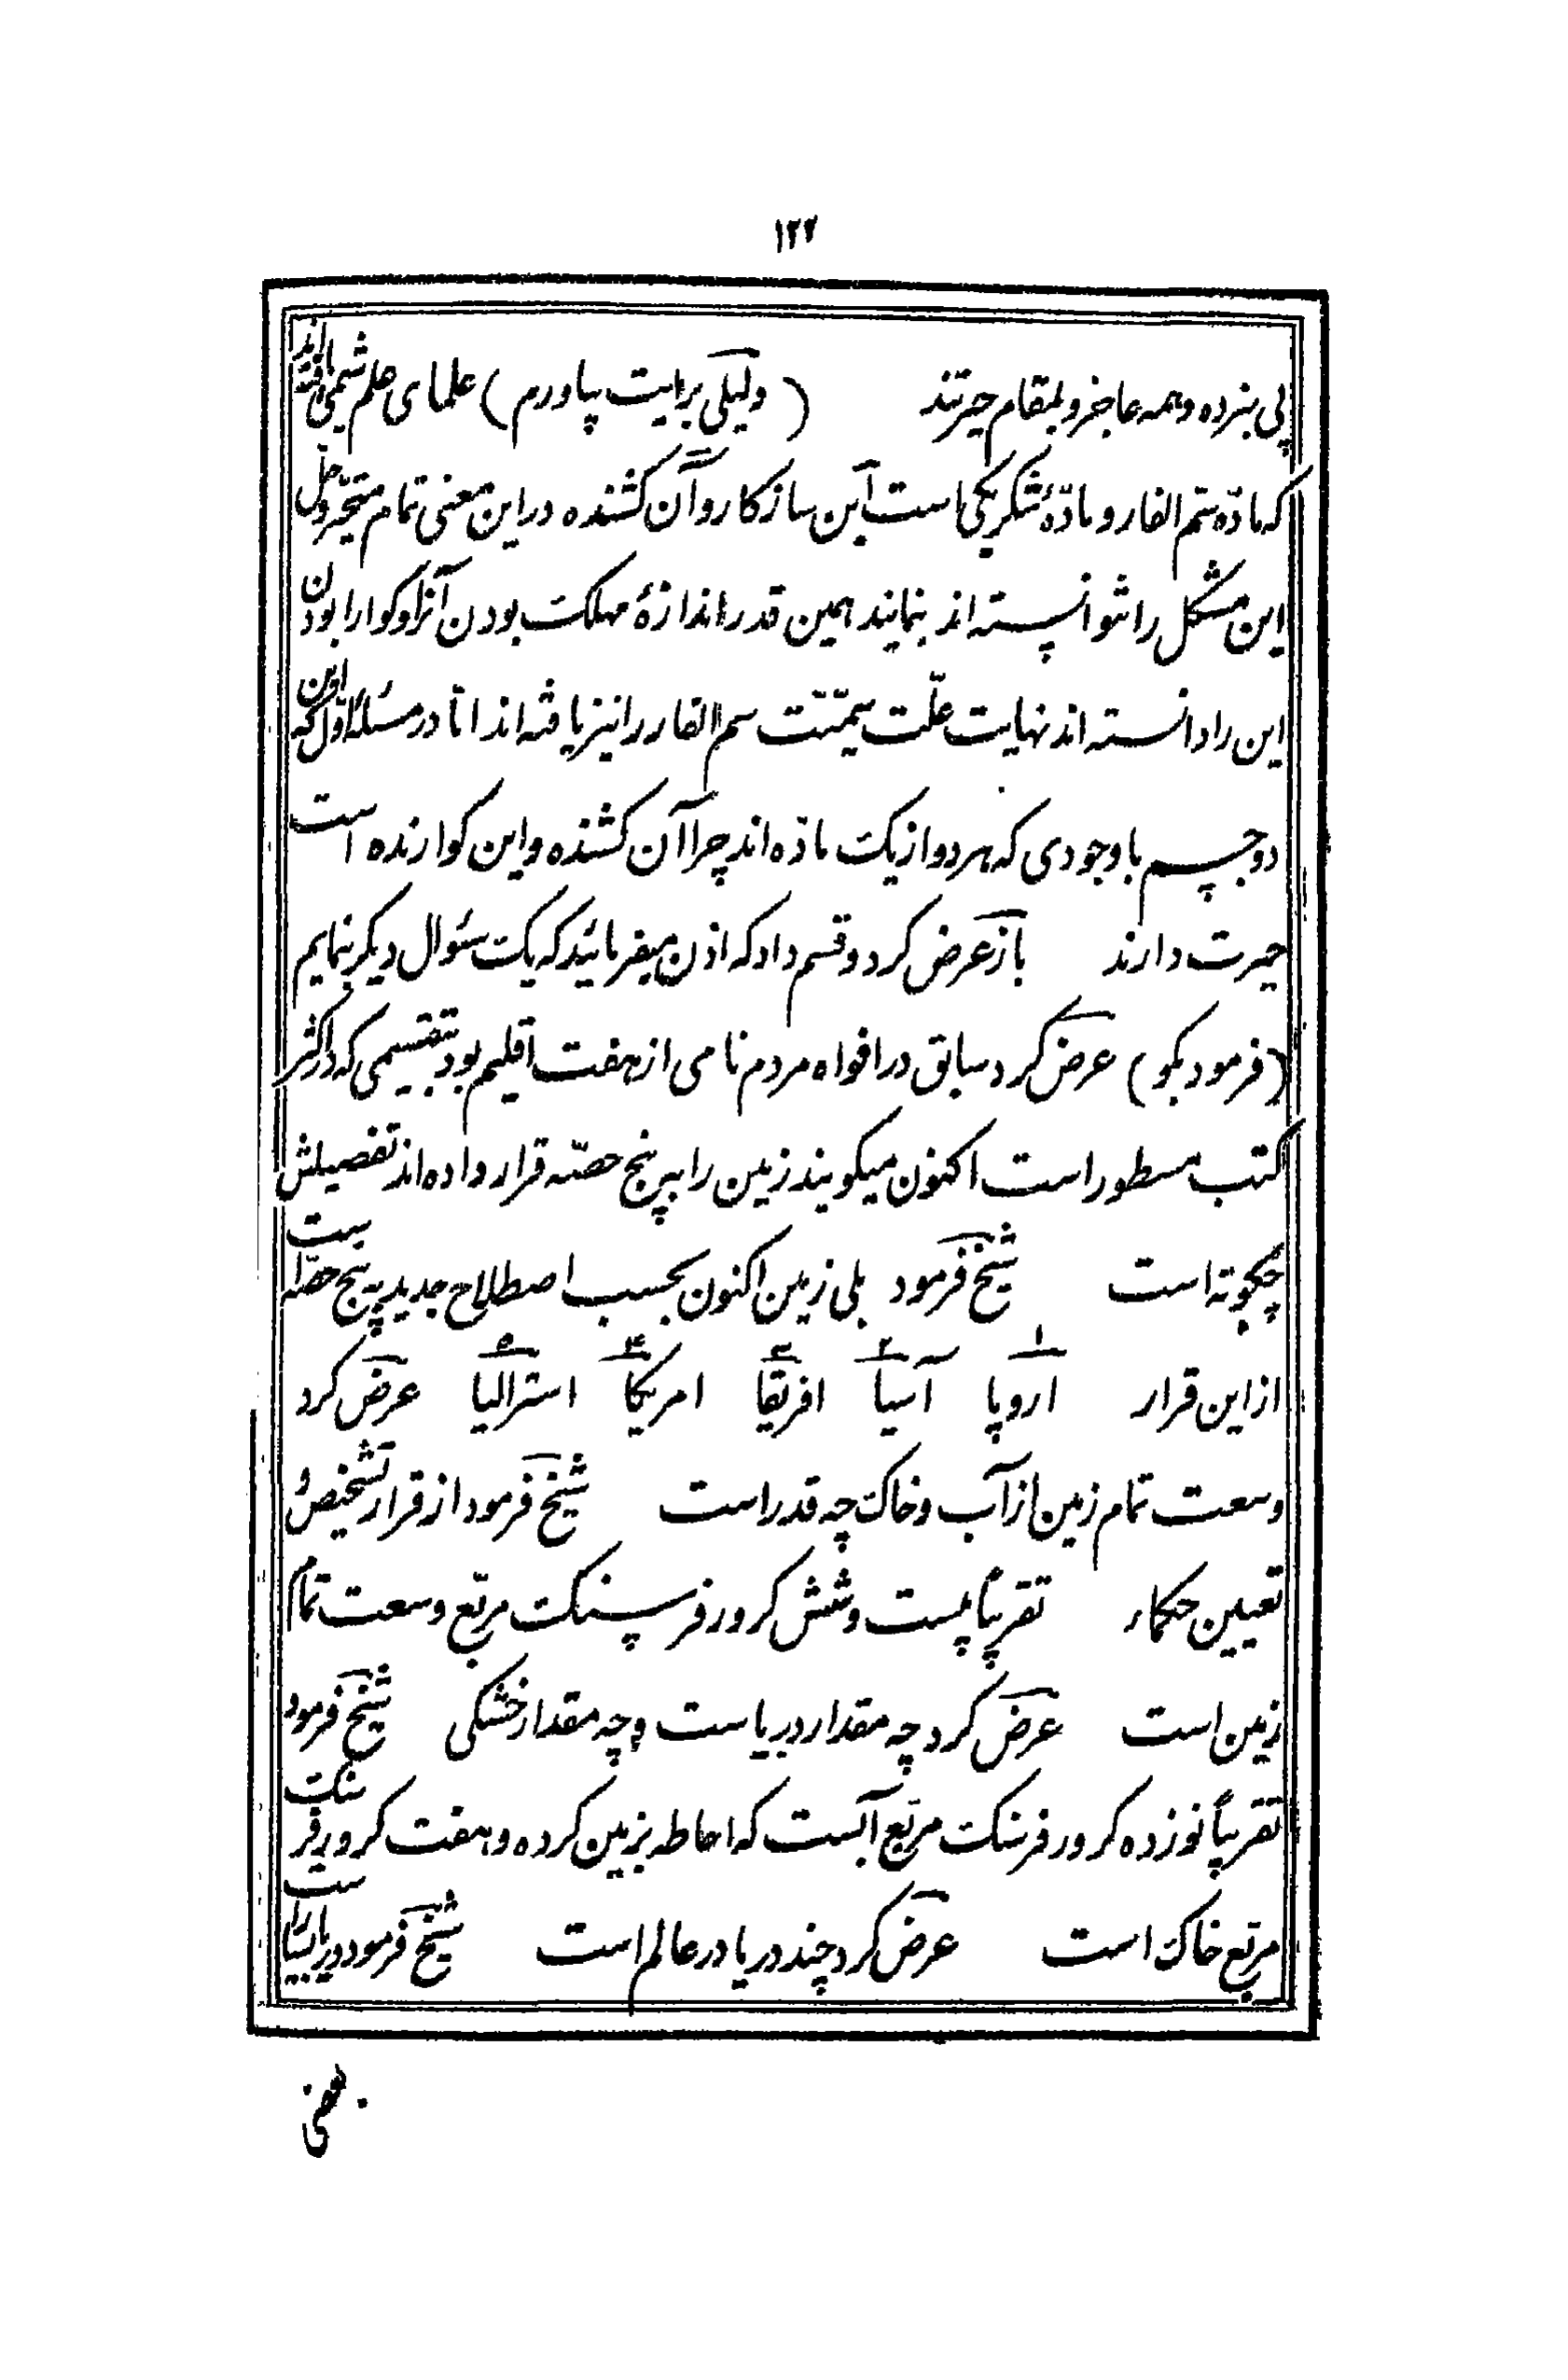 ۱۲۲
پی نبرده و همه عاجز و بمقام حیرتند ( دلیلی برایت بیاورم ) علمای علم شیمی یافته‌اند
که ماده سم الفار و مادهٔ شکر یکی است این سازکار و آن کشنده در این معنی تمام متحیر و حل
این مشکل را نتوانسته‌اند بنمایند همین قدر اندازهٔ مهلک بودن آنرا و کوارا بودن
این را دانسته‌اند نهایت علّت سمّیّت سم الفار را نیز یافته‌اند امّا در مسئلهٔ اوّل که این
دو جسم با وجودی که هر دو از یک ماده‌اند چرا آن کشنده و این کوارنده است
حیرت دارند باز عرض کرد و قسم داد که اذن میفرمائید که یک سئوال دیکر بنمایم
(فرمود بکو) عرض کرد سابق در افواه مردم نامی از هفت اقلیم بود بتقسیمی که در اکثر
کتب مسطور است اکنون میکویند زمین را به پنج حصّه قرار داده‌اند تفصیلش
چکونه است شیخ فرمود بلی زمین اکنون بحسب اصطلاح جدید به پنج حصّه است
از این قرار ۱ اروپا ۲ آسیا ۳ افریقا ۴ امریکا ۵ استرالیا عرض کرد
وسعت تمام زمین از آب و خاک چه قدر است شیخ فرمود از قرار تشخیص و
تعیین حکماء تقریباً بیست و شش کرور فرسنک مربّع وسعت تمام
زمین است عرض کرد چه مقدار دریاست و چه مقدار خشکی شیخ فرمود
تقریباً نوزده کرور فرسنک مربّع آبست که احاطه بزمین کرده و هفت کرور فرسنک
مربّع خاک است عرض کرد چند دریا در عالم است شیخ فرمود دریا بسیار است
بعضی